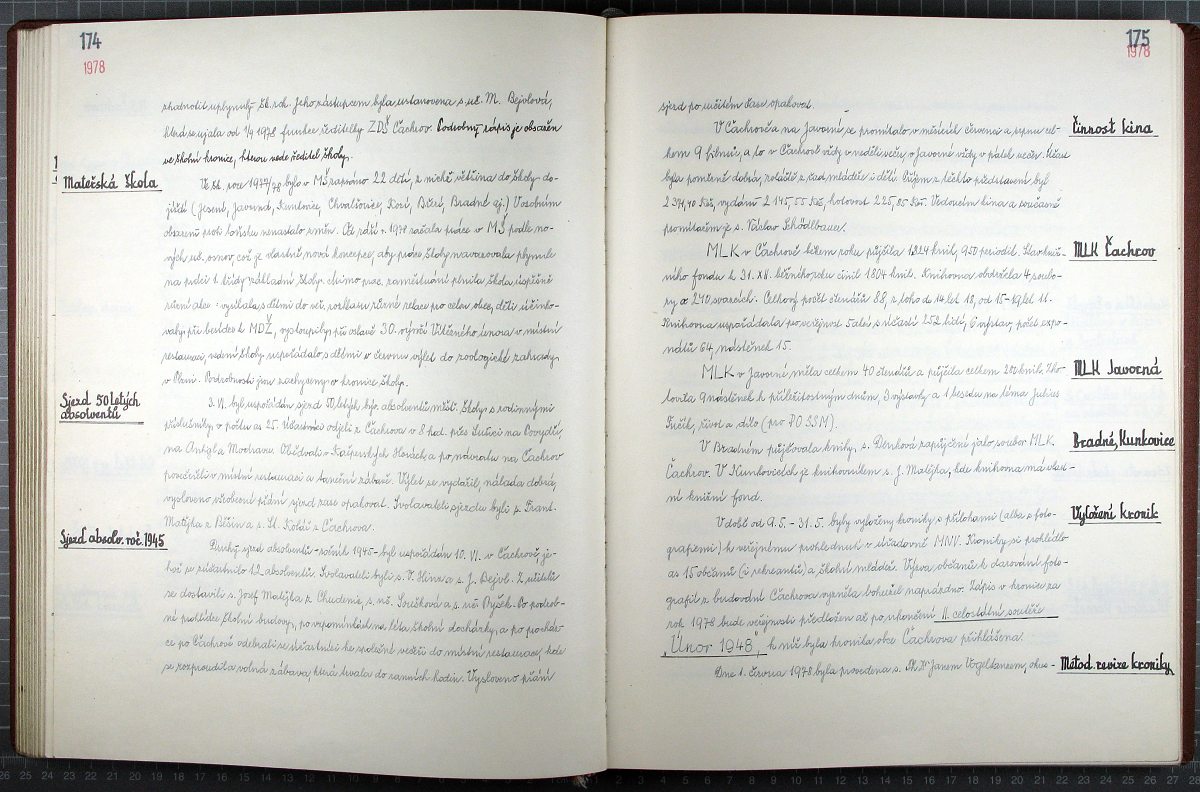 174
1978
zhodnotit uplynulý šk. rok. Jeho zástupcem byla ustanovena s. uč. M. Bejvlová,
která se ujala od 1/9 1978 funkce ředitelky ZDŠ Čachrov. Podrobný zápis je obsažen
ve školní kronice, kterou vede ředitel školy.
Mateřská škola
Ve šk. roce 1977/78 bylo v MŠ zapsáno 22 dětí, z nichž většina do školy do-
jíždí (Jesení, Javorná, Kunkovice, Chvalšovice, Kozí, Březí, Bradné aj.) V osobním
obsazení proti loňsku nenastalo změn. Od září r. 1978 začala práce v MŠ podle no-
vých uč. osnov, což je vlastně nová koncepce, aby práce školy navazovala plynule
na práci 1. třídy základní školy. Mimo prac. zaměstnání plnila škola úspěšně
různé akce: vysílala s dětmi do míst. rozhlasu různé relace pro celou obec, děti účinko-
valy při besídce k MDŽ, vystoupily při oslavě 30. výročí Vítězného února v místní
restauraci, vedení školy uspořádalo s dětmi v červnu výlet do zoologické zahrady
v Plzni. Podrobnosti jsou zachyceny v kronice školy.
Sjezd 50 letých
absolventů
3. VI. byl uspořádán sjezd 50 letých býv. absolventů měšť. školy s rodinnými
příslušníky v počtu as 25. Účastníci odjeli z Čachrova v 8 hod. přes Sušici na Povydří,
na Antýgl a Modravu. Obědvali v Kašperských Horách a po návratu na Čachrov
povečeřeli v místní restauraci a taneční zábavě. Výlet se vydařil, nálada dobrá,
vysloveno všeobecné přání sjezd zase opakovat. Svolavateli sjezdu byli s. Frant.
Matějka z Běšin a s. St. Kolář z Čachrova.
Sjezd absolv. roč. 1945
Druhý sjezd absolventů - ročník 1945 - byl uspořádán 10. VI. v Čachrově, je-
hož se zúčastnilo 12 absolventů. Svolavateli byli s. V. Hinz a s. J. Bejvl. Z učitelů
se dostavili s. Josef Matějka z Chudenic, s. uč. Soušková a s. uč. Ryšek. Po podrob-
né prohlídce školní budovy, po vzpomínkách na léta školní docházky, a po pochůz-
ce po Čachrově odebrali se účastníci ke společné večeři do místní restaurace, kde
se rozproudila volná zábava, která trvala do ranních hodin. Vysloveno přání
175
1978
sjezd po určitém čase opakovat.
Činnost kina
V Čachrově a na Javorné se promítalo v měsících červenci a srpnu cel-
kem 9 filmů, a to v Čachrově vždy v neděli večer, v Javorné vždy v pátek večer. Účast
byla poměrně dobrá, zvláště z řad mládeže i dětí. Příjem z těchto představení byl
2 371,40 Kčs, vydání 2 145,55 Kčs, hotovost 225,85 Kčs. Vedoucím kina a současně
promítačem je s. Václav Schödlbauer.
MLK Čachrov
MLK v Čachrově během roku půjčila 1224 knih, 950 periodik. Stav kniž-
ního fondu k 31. XII. běžného roku činil 1804 knih. Knihovna obdržela 4 soubo-
ry o 240 svazcích. Celkový počet čtenářů 88, z toho do 14 let 18, od 15-19 let 11.
Knihovna uspořádala pro veřejnost 5 akcí s účastí 252 lidí, 6 výstav, počet expo-
nátů 64, nástěnek 15.
MLK Javorná
MLK v Javorné měla celkem 40 čtenářů a půjčila celkem 200 knih. Zho-
tovila 9 nástěnek k příležitostným dnům, 3 výstavky a 1 besedu na téma Julius
Fučík, život a dílo (pro PO SSM).
Bradné, Kunkovice
V Bradném půjčovala knihy s. Denková zapůjčené jako soubor MLK
Čachrov. V Kunkovicích je knihovníkem s. J. Matějka, kde knihovna má vlast-
ní knižní fond.
Vyložení kronik
V době od 9. 5. - 31. 5. byly vyloženy kroniky s přílohami (alba s foto-
grafiemi) k veřejnému prohlédnutí v úřadovně MNV. Kroniky si prohlédlo
as 15 občanů (i rekreantů) a školní mládež. Výzva občanů k darování foto-
grafií z budování Čachrova vyzněla bohužel naprázdno. Zápis v kronice za
rok 1978 bude veřejnosti předložen až po ukončení II. celostátní soutěže
„Únor 1948", k níž byla kronika obce Čachrova přihlášena.
Metod. revize kroniky
Dne 1. června 1978 byla provedena s. PhDr Janem Vogeltanzem, okres-